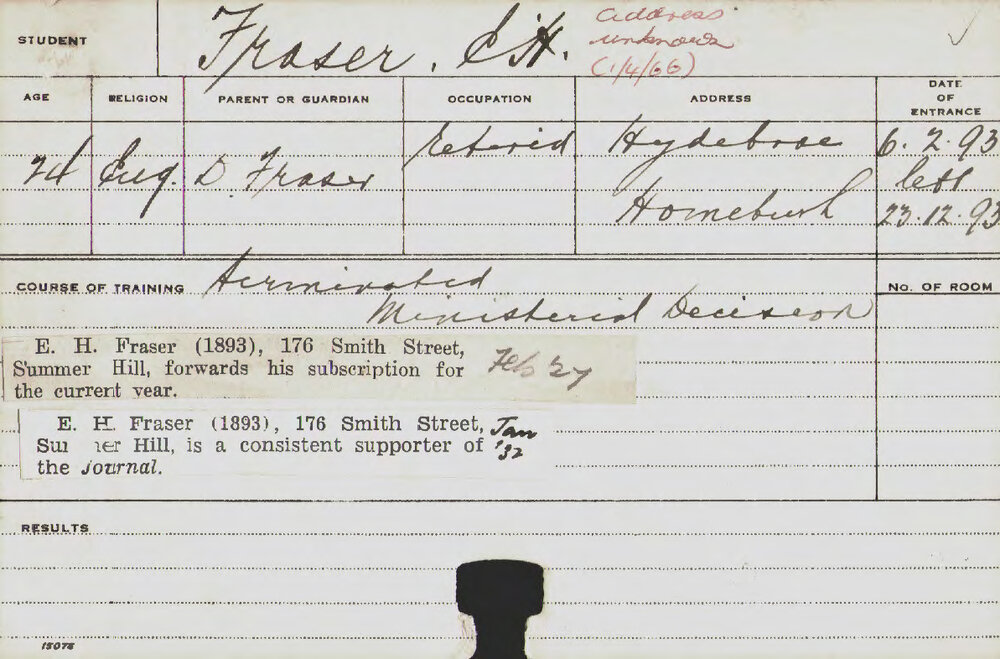 STUDENT
Fraser. E H.
address
unknown
(1/4/66)
AGE RELIGION PARENT OR GUARDIAN OCCUPATION ADDRESS DATE OF ENTRANCE
24 Eng. D. Fraser Retired Hydebrae 6.2.93
left
Homebush 23.12.93
COURSE OF TRAINING Terminated
Ministerial Decision
No. OF ROOM
E. H. Fraser (1893), 176 Smith Street,
Summer Hill, forwards his subscription for
the current year.
Feb 27
E. H. Fraser (1893), 176 Smith Street,
Su er Hill, is a consistent supporter of
the Journal.
Jan
'32
RESULTS
15075